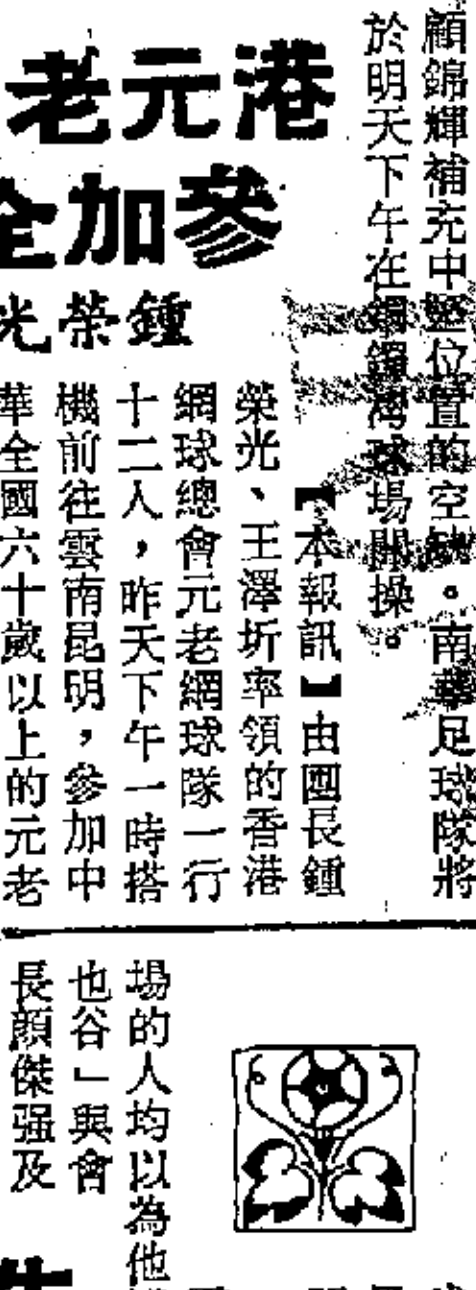 顧錦輝補充中堅位置的空缺。南華足球隊將
於明天下午在銅鑼灣球場開操。
港元老
參加全
鍾榮光
【本報訊】由團長鍾
榮光、王澤圻率領的香港
網球總會元老網球隊一行
十二人，昨天下午一時搭
機前往雲南昆明，參加中
華全國六十歲以上的元老
場的人均以為他
也谷」與會
長顏傑强及